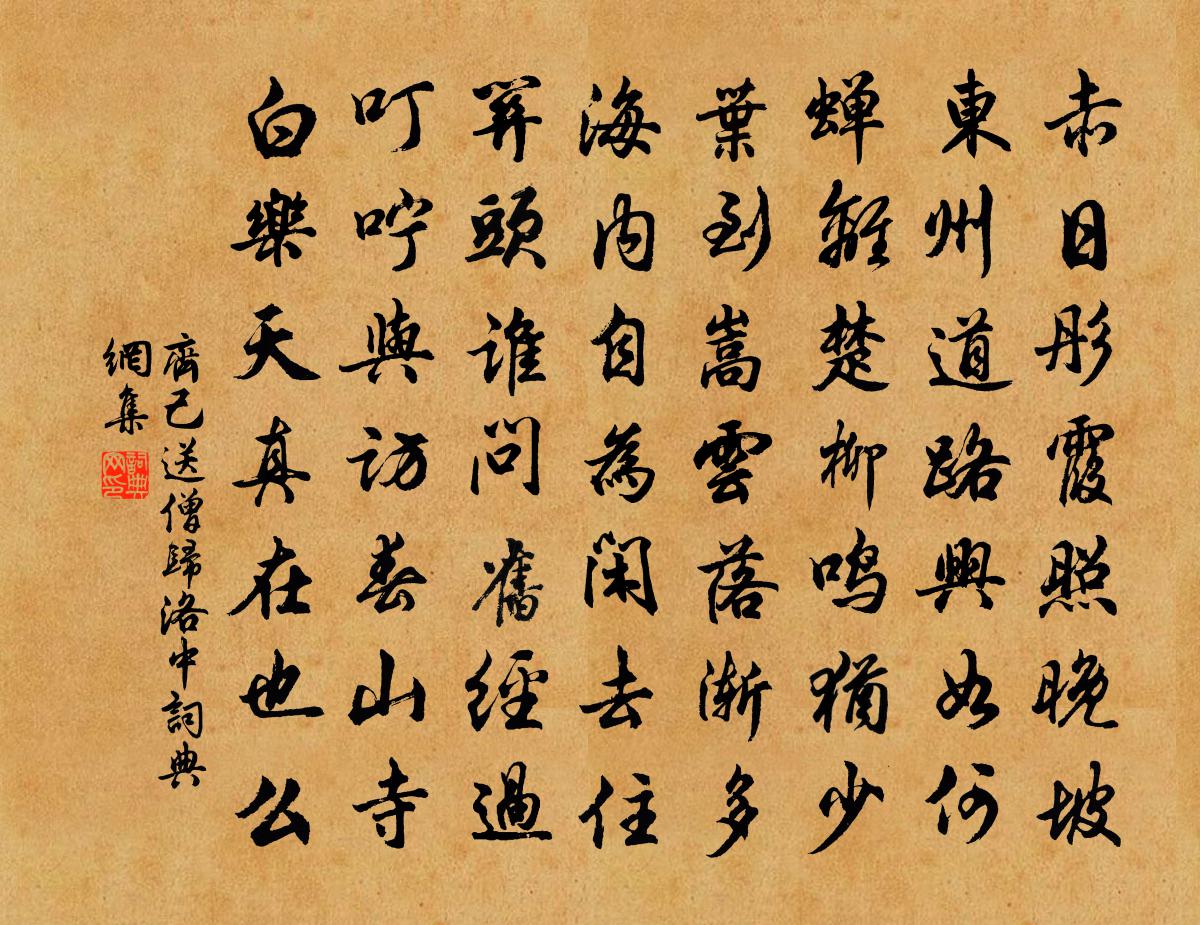 赤日彤霞照晚坡
東州道路興如何
蝉離楚柳鳴猶少
葉到嵩雲落漸多
海内自為閑去住
關頭誰問舊經過
叮嚀與訪春山寺
白樂天真在也么
齊己送僧歸洛中詞典
網集
詞典网印